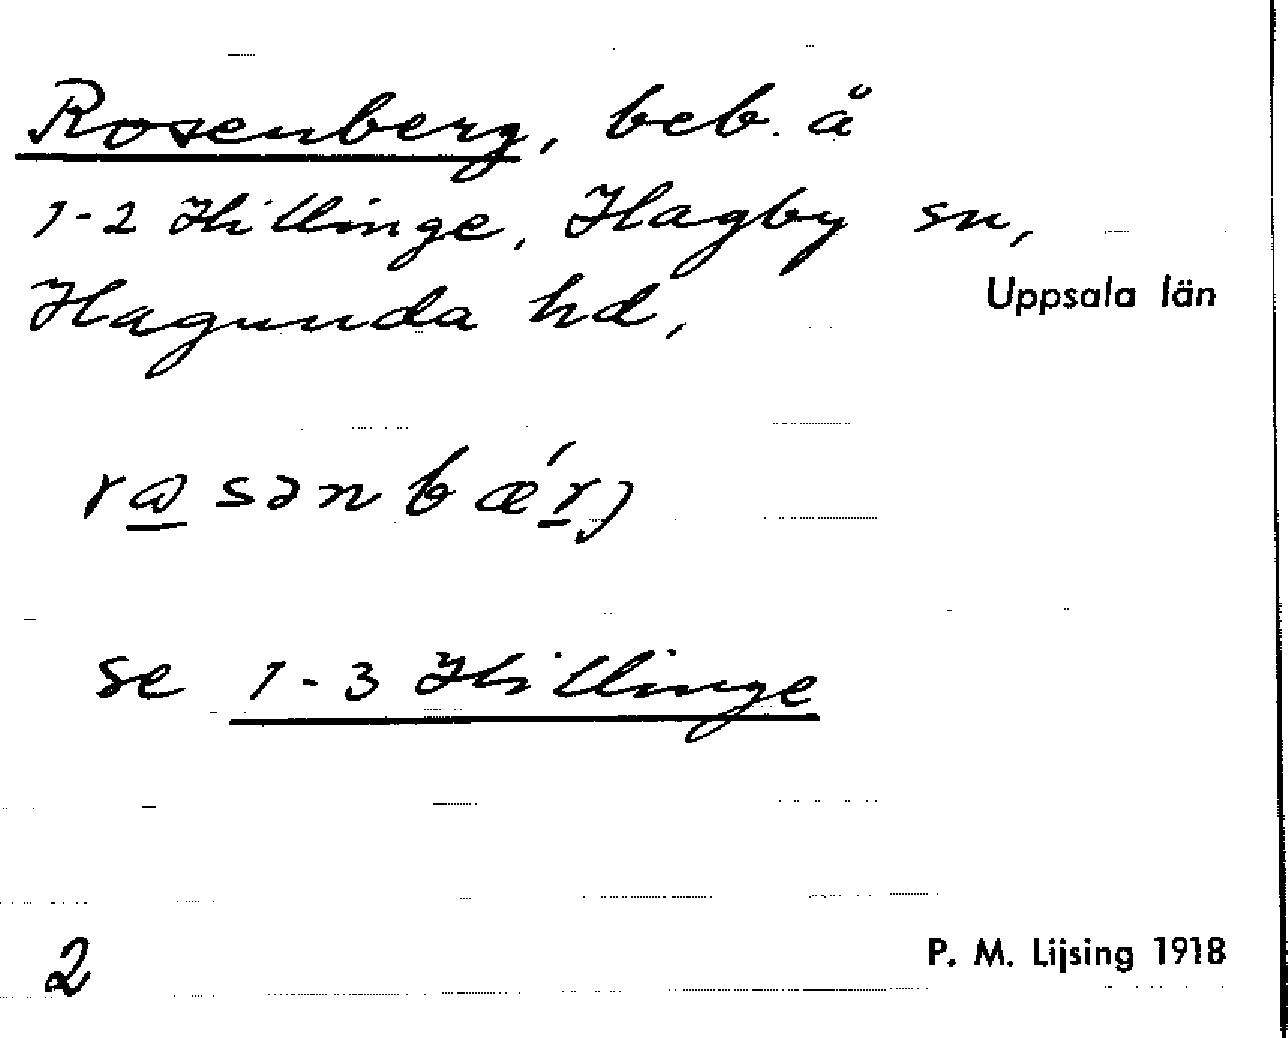 Rosenberg, beb. å
1-2 Hillinge, Hagby sn,
Hagunda hd,
Uppsala län
se 1-3 Hillinge
2
P. M. Lijsing 1918